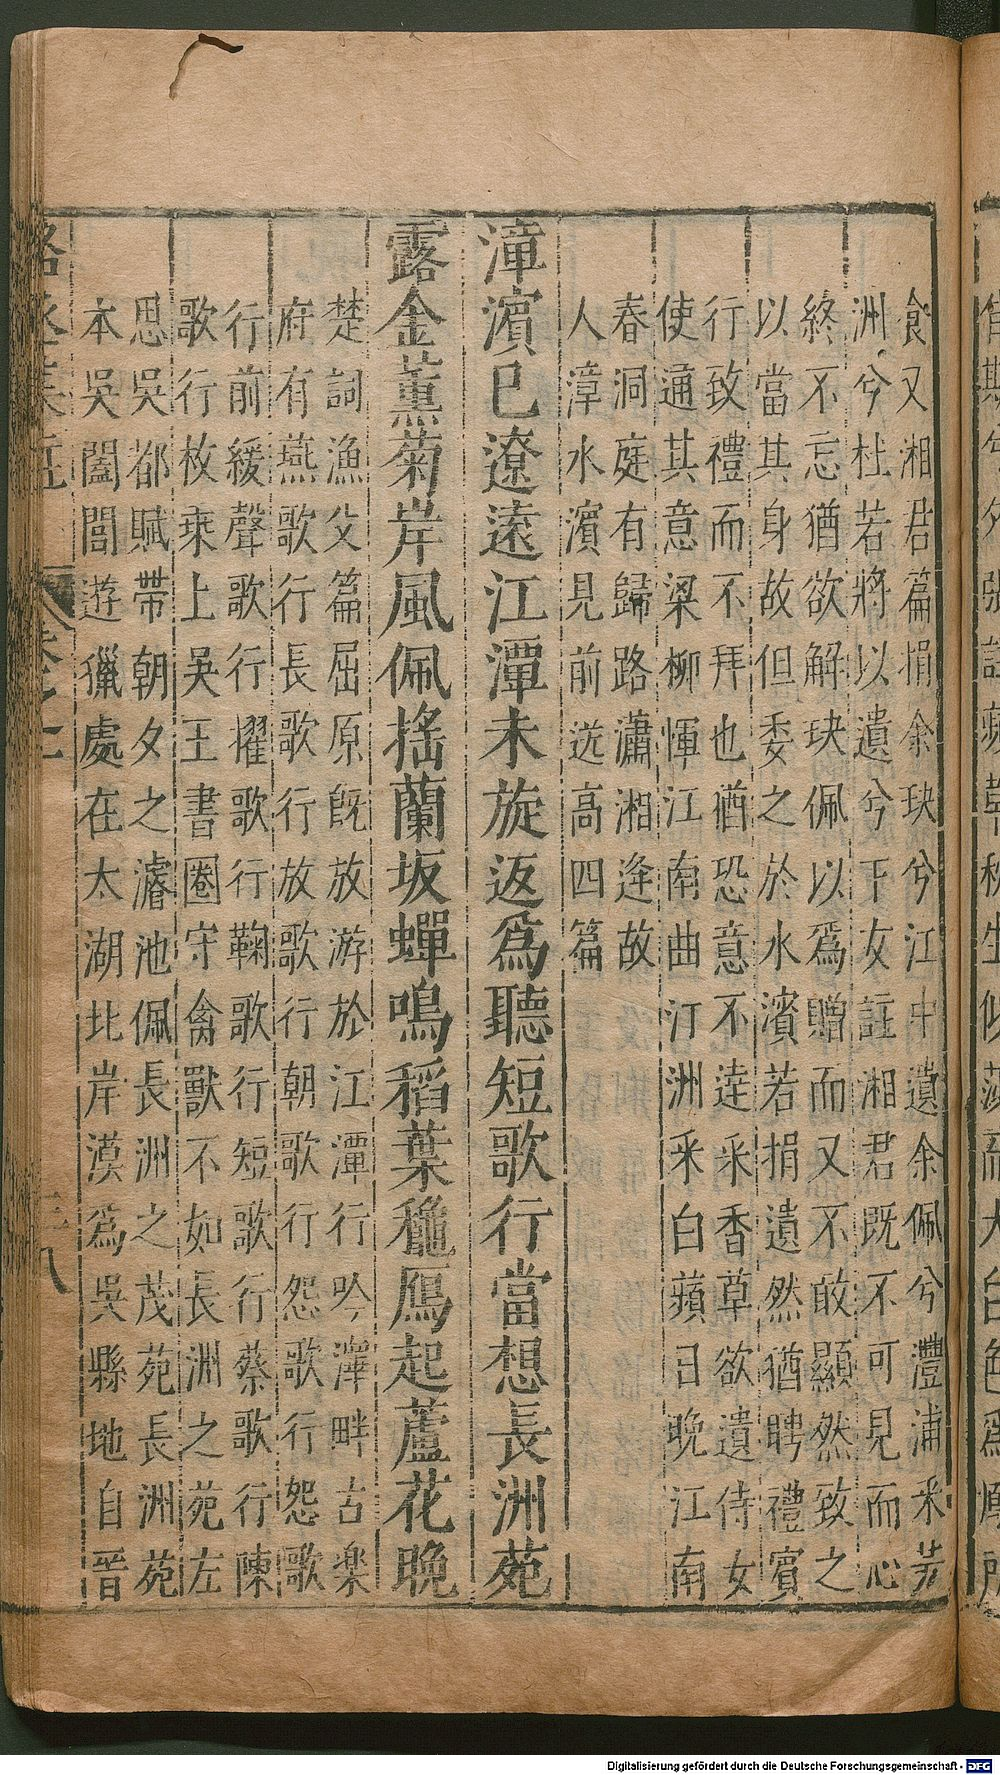 飡又湘君篇捐余玦兮江中遺余佩兮灃浦采芳
洲兮杜若將以遺兮下女註湘君既不可見而心
終不忘猶欲解玦佩以爲贈而又不敢顯然致之
以當其身故但委之於水濱若捐遺然猶聘禮賓
行致禮而不拜也猶恐意不達采香草欲遺侍女
使通其意梁柳惲江南曲汀洲采白蘋日晚江南
春洞庭有歸路瀟湘逢故
人漳水濱見前送高四篇
漳濱已遼遠江潭未旋返爲聽短歌行當想長洲苑
露金薰菊岸風佩搖蘭坂蟬鳴稻葉穐鴈起蘆花晚
楚詞漁父篇屈原既放游於江潭行吟澤畔古樂
府有燕歌行長歌行放歌行朝歌行怨歌行怨歌
行前緩聲歌行櫂歌行鞠歌行短歌行蔡歌行陳
歌行枚乘上吳王書圈守禽獸不如長洲之苑左
思吳都賦帶朝夕之濬池佩長洲之茂苑長洲苑
本吳闔閭遊獵處在太湖北岸漠爲吳縣地自晋
卷之上
八
Digitalisierung gefördert durch die Deutsche Forschungsgemeinschaft - DFG